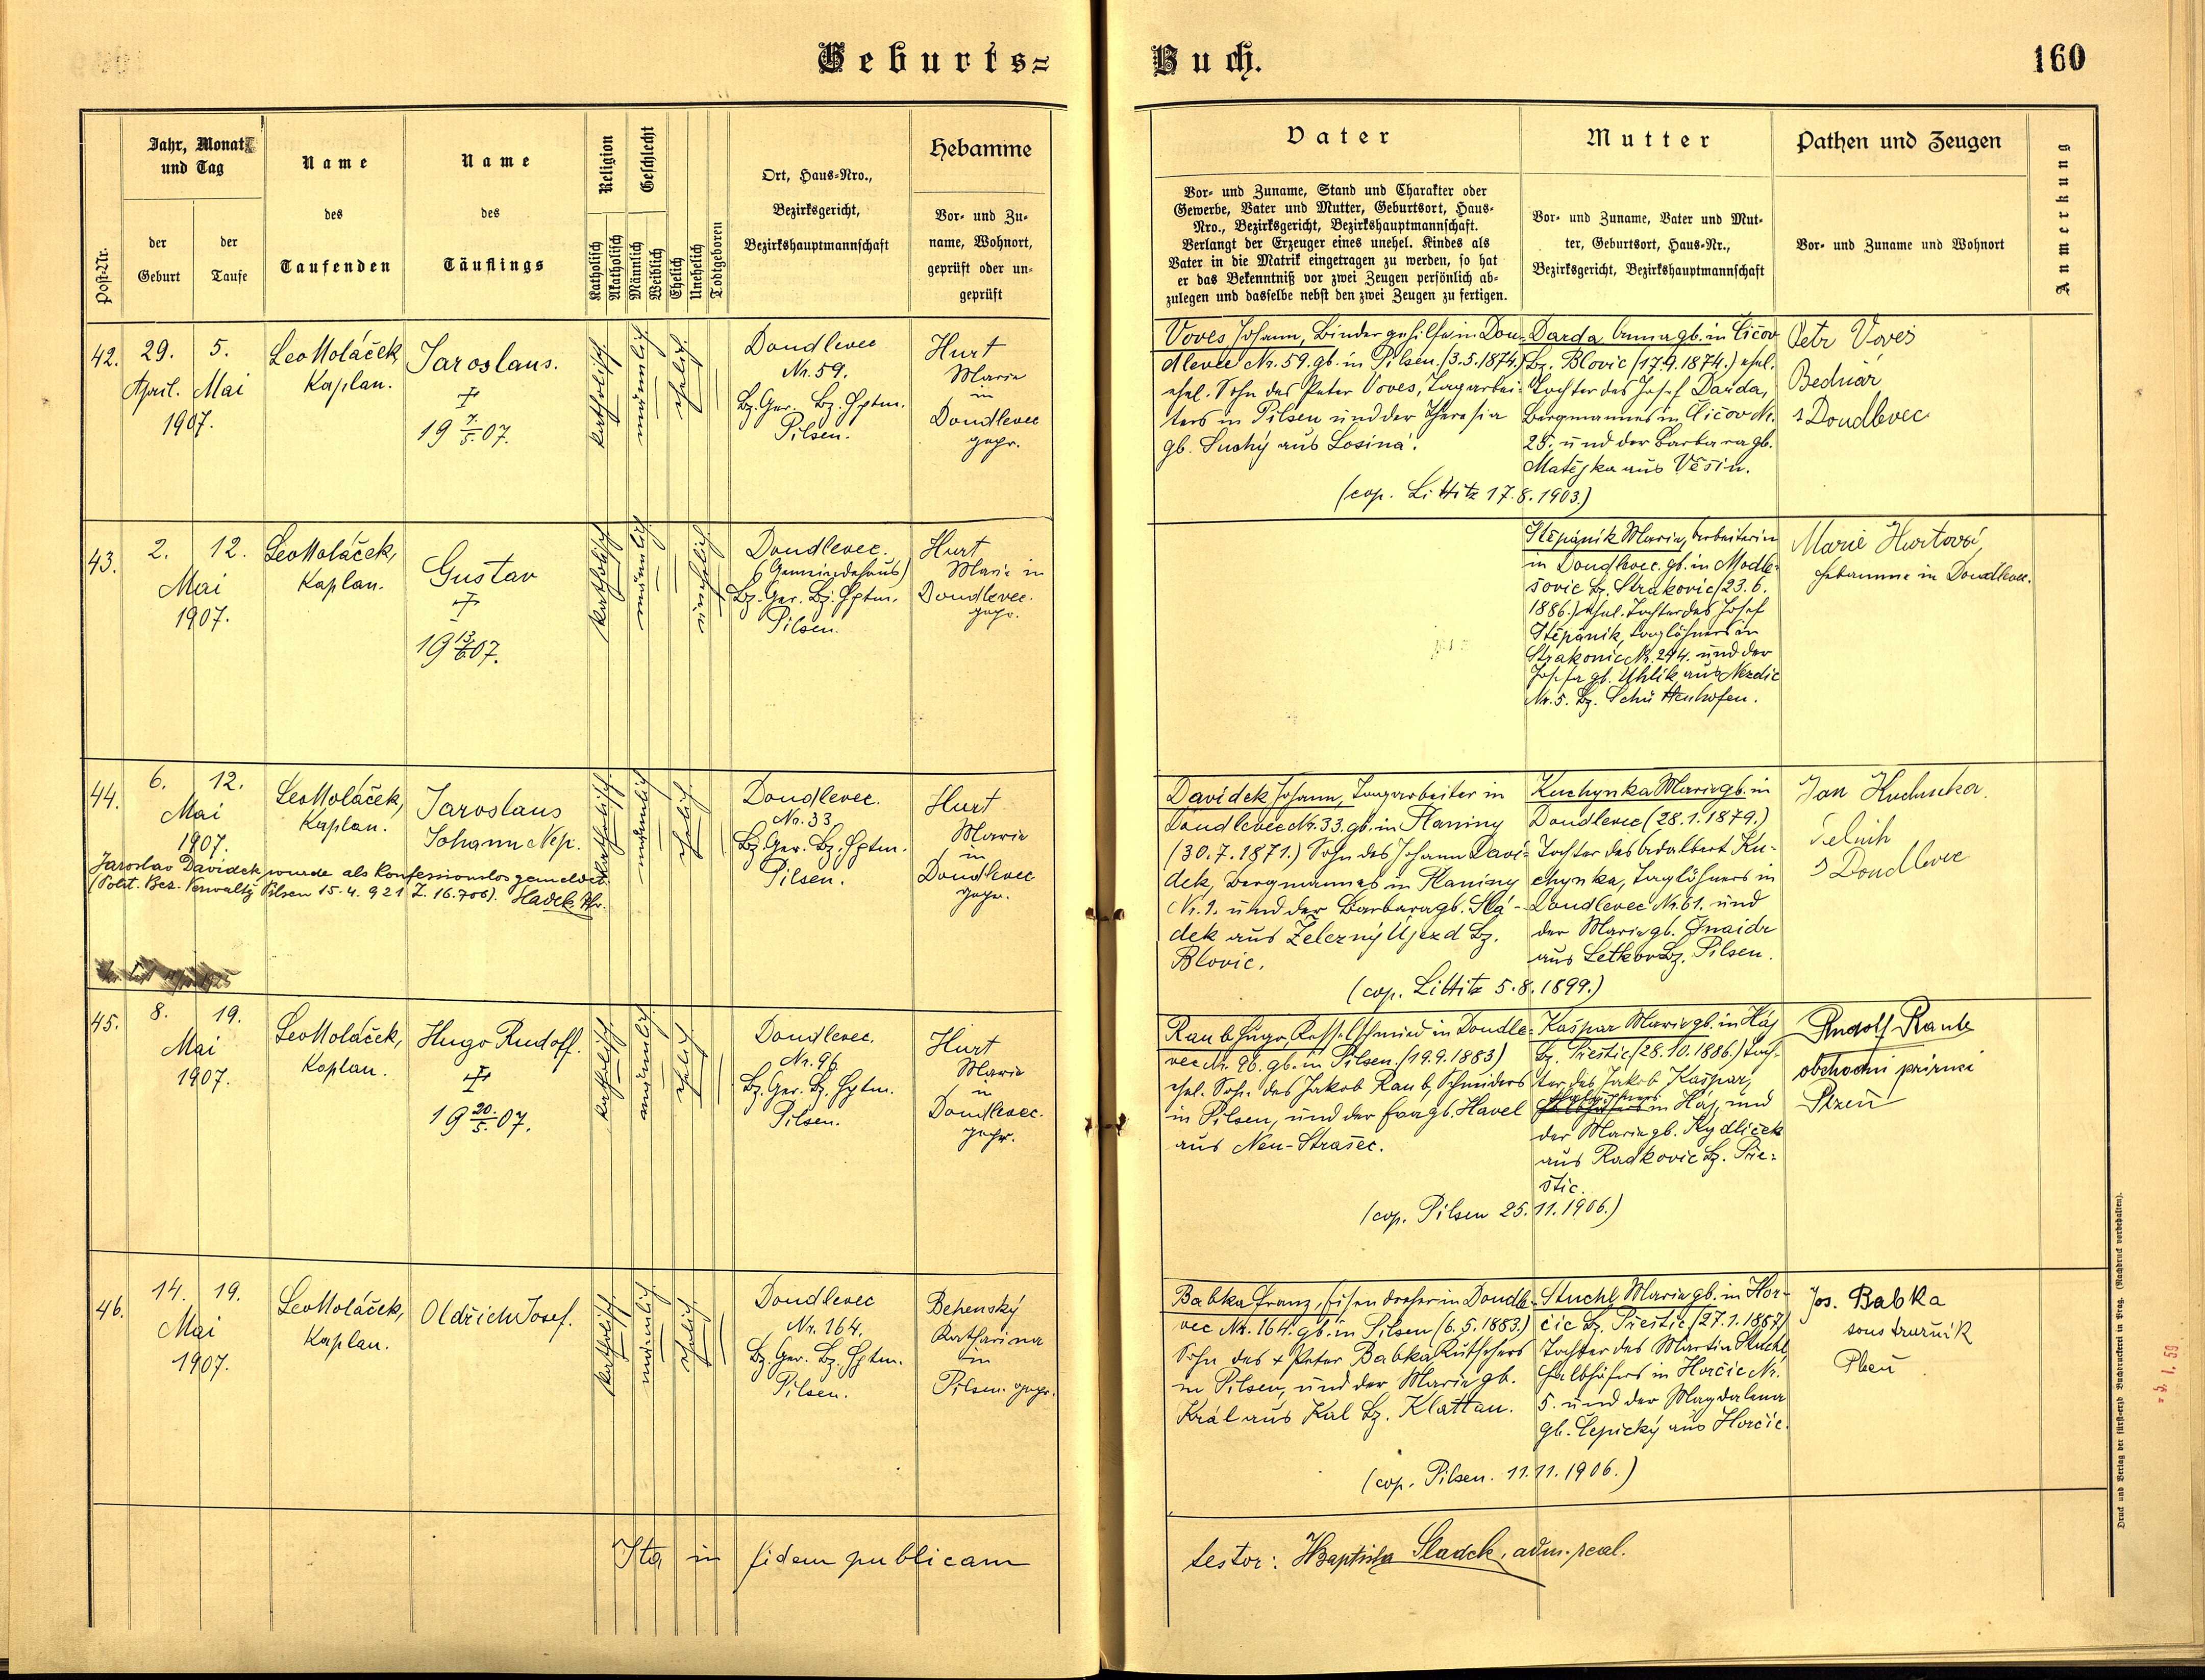 Geburts=
Buch.
160
Post-Nr.
Jahr, Monat
und Tag
der
Geburt
der
Taufe
Name
des
Taufenden
Name
des
Täuflings
Religion
Katholisch
Akatholisch
Geschlecht
Männlich
Weiblich
Ehelich
Unehelich
Todtgeboren
Ort, Haus=Nro.,
Bezirksgericht,
Bezirkshauptmannschaft
Hebamme
Vor= und Zu=
name, Wohnort,
geprüft oder un=
geprüft
Vater
Vor= und Zuname, Stand und Charakter oder
Gewerbe, Vater und Mutter, Geburtsort, Haus=
Nro., Bezirksgericht, Bezirkshauptmannschaft.
Verlangt der Erzeuger eines unehel. Kindes als
Vater in die Matrik eingetragen zu werden, so hat
er das Bekenntniß vor zwei Zeugen persönlich ab=
zulegen und dasselbe nebst den zwei Zeugen zu fertigen.
Mutter
Vor= und Zuname, Vater und Mut=
ter, Geburtsort, Haus=Nr.,
Bezirksgericht, Bezirkshauptmannschaft
Pathen und Zeugen
Vor= und Zuname und Wohnort
Anmerkung
42.
29. 5.
April. Mai
1907.
Leo Moláček,
Kaplan.
Jaroslaus.
19 7/5. 07.
katholisch
männlich
ehelich
Doudlevec
Nr. 59.
Bz. Ger. Bz. Hptm.
Pilsen.
Hurt
Marie
in
Doudlevec
gepr.
Voves Johann, Bindergehilfe in Dou=
dlevec Nr. 59. gb. in Pilsen (3.5.1874.)
ehel. Sohn des Peter Voves, Tagarbei=
ters in Pilsen und der Theresia
gb. Suchý aus Losiná.
Darda Anna gb. in Čičov
Bz. Blovic (17.9.1874.) ehel.
Tochter des Josef Darda,
Bergmannes in Čičov Nr.
25. und der Barbara gb.
Matějka aus Věšín.
(cop. Littitz 17.8.1903.)
Petr Voves
Bednář
z Doudlevec
43.
2. 12.
Mai
1907.
Leo Moláček,
Kaplan.
Gustav
19 13/6 07.
katholisch
männlich
unehelich
Doudlevec.
(Gemeindehaus)
Bz. Ger. Bz. Hptm.
Pilsen.
Hurt
Marie in
Doudlevec.
gepr.
Štěpánik Marie, Arbeiterin
in Doudlevec. gb. in Modle=
šovic Bz. Strakonic (23.6.
1886.) ehel. Tochter des Josef
Štěpánik, Taglöhners in
Strakonic Nr. 244. und der
Josefa gb. Uhlík aus Nezdic
Nr. 5. Bz. Schüttenhofen.
Marie Hurtová,
Hebamme in Doudlevec.
44.
6. 12.
Mai
1907.
Leo Moláček,
Kaplan.
Jaroslaus
Johann Nep.
katholisch
männlich
ehelich
Doudlevec.
Nr. 33
Bz. Ger. Bz. Hptm.
Pilsen.
Hurt
Marie
in
Doudlevec
gepr.
Jaroslav Davídek wurde als konfessionslos gemeldet.
(Polit. Bez. Verwaltg Pilsen 15.4.921 Z. 16.706).
Davídek Johann, Tagarbeiter in
Doudlevec Nr. 33. gb. in Planiny
(30.7.1871.) Sohn des Johann Daví=
dek, Bergmannes in Planiny
Nr. 1. und der Barbara gb. Slá=
dek aus Železný Újezd Bz.
Blovic.
Kuchynka Marie gb. in
Doudlevec (28.1.1879.)
Tochter des Adalbert Ku=
chynka, Taglöhners in
Doudlevec Nr. 61. und
der Marie gb. Šnaidr
aus Letkov Bz. Pilsen.
(cop. Littitz 5.8.1899.)
Jan
z Doudlevec
45.
8. 19.
Mai
1907.
Leo Moláček,
Kaplan.
Hugo Rudolf.
19 20./5. 07.
katholisch
männlich
ehelich
Doudlevec.
Nr. 96
Bz. Ger. Bz. Hptm.
Pilsen.
Hurt
Marie
in
Doudlevec.
gepr.
Raub Hugo, Kesselschmied in Doudle=
vec Nr. 96. gb. in Pilsen (19.9.1883)
ehel. Sohn des Jakob Raub, Schneiders
in Pilsen, und der Eva gb. Havel
aus Neu-Strašec.
Kašpar Marie gb. in Háj
Bz. Přestic (28.10.1886.) Toch=
ter des Jakob Kašpar,
in Háj, und
der Marie gb. Rydlíček
aus Radkovic Bz. Pře=
stic.
(cop. Pilsen 25.11.1906.)
Rudolf Raub
obchodní
Plzeň
46.
14. 19.
Mai
1907.
Leo Moláček,
Kaplan.
Oldřich Josef.
katholisch
männlich
ehelich
Doudlevec
Nr. 164.
Bz. Ger. Bz. Hptm.
Pilsen.
Behenský
Katharina
in
Pilsen. gepr.
Babka Franz, Eisendreher in Doudle=
vec Nr. 164. gb. in Pilsen (6.5.1883.)
Sohn des + Peter Babka Kutschers
in Pilsen, und der Marie gb.
Král aus Kal Bz. Klattau.
Stuchl Marie gb. in Hor=
čic Bz. Přestic (27.1.1887)
Tochter des Martin Stuchl
Halbhöfers in Horčic Nr.
5. und der Magdalena
gb. Čepický aus Horčic.
(cop. Pilsen. 11.11.1906.)
Jos. Babka
soustružník
Plzeň
Ita in fidem publicam
testor: JBaptista Sladek, adm.
Druck und Verlag der fürst=erzb. Buchdruckerei in Prag. (Nachdruck vorbehalten).